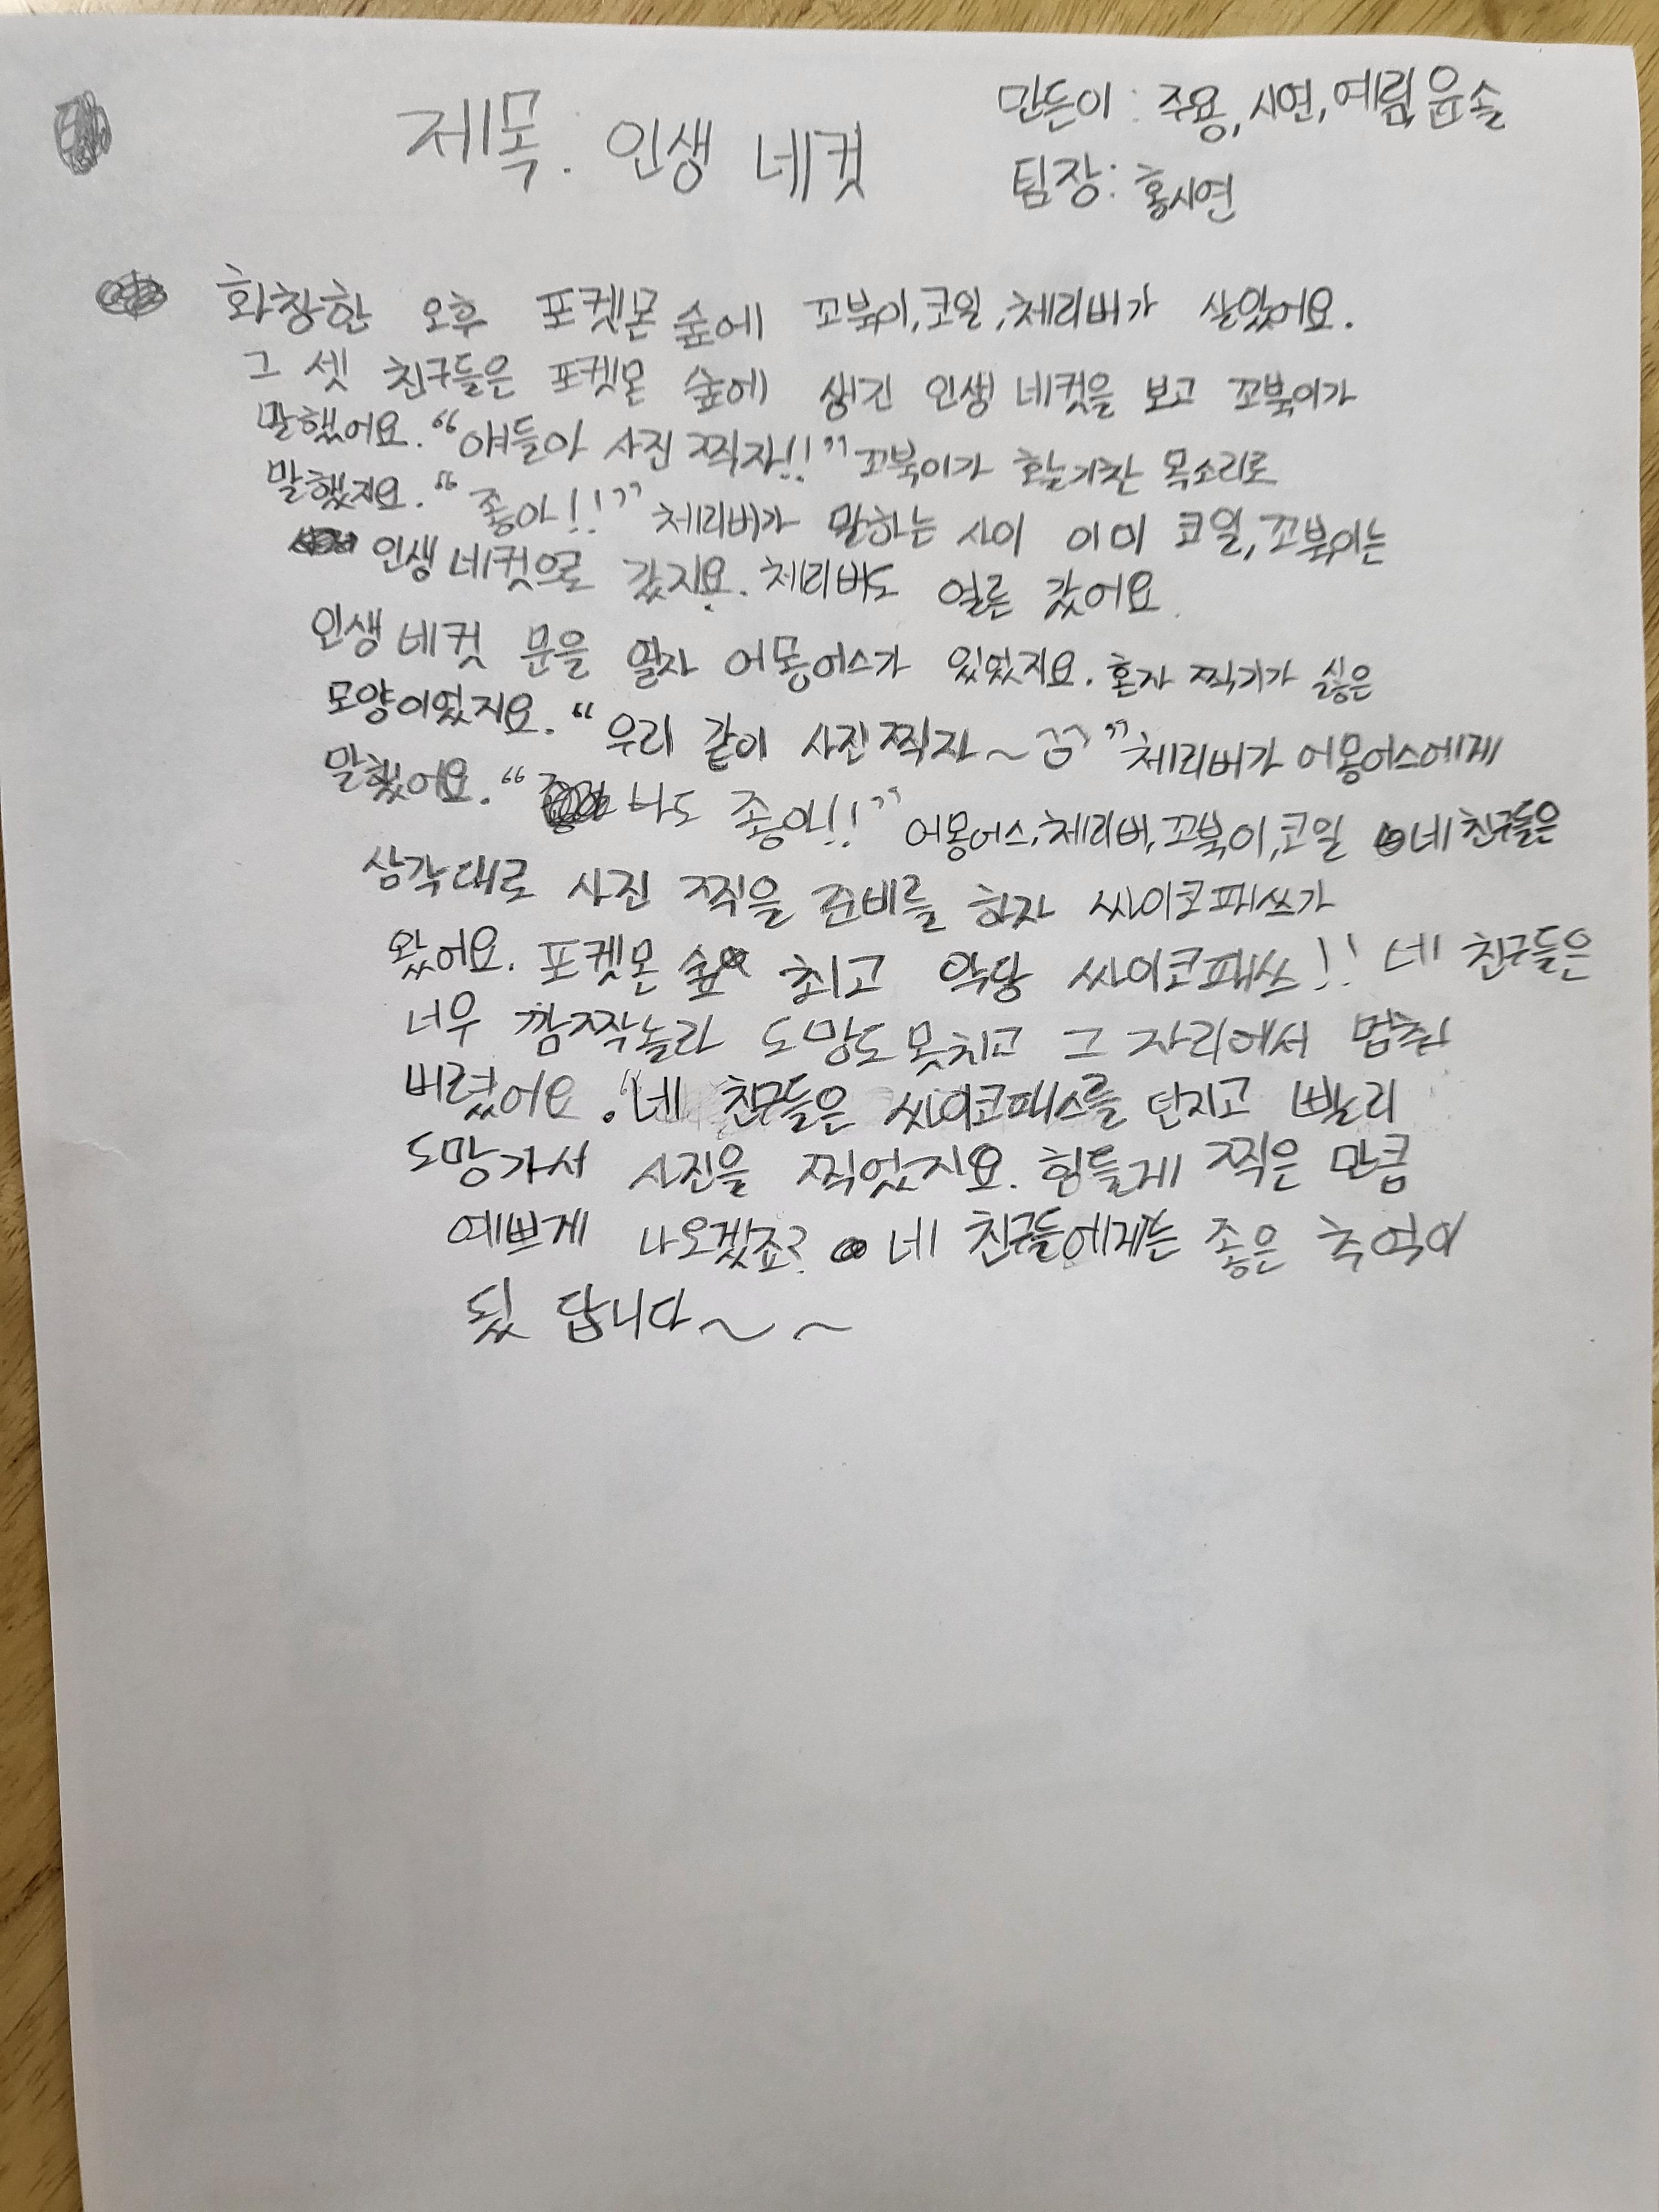 제목: 인생 네컷
만든이: 주용, 시연, 예림, 윤솔
팀장: 홍시연
화창한 오후 포켓몬 숲에 꼬북이, 코일, 체리버가 살았어요.
그 셋 친구들은 포켓몬 숲에 생긴 인생 네컷을 보고 꼬북이가
말했어요. “얘들아 사진 찍자!!” 꼬북이가 활기찬 목소리로
말했지요. “좋아!!” 체리버가 말하는 사이 이미 코일, 꼬북이는
인생 네컷으로 갔지요. 체리버도 얼른 갔어요.
인생 네컷 문을 열자 어몽어스가 있었지요. 혼자 찍기가 싫은
모양이었지요. “우리 같이 사진 찍자~^^” 체리버가 어몽어스에게
말했어요. “나도 좋아!!” 어몽어스, 체리버, 꼬북이, 코일 네 친구들은
삼각대로 사진 찍을 준비를 하자 싸이코패쓰가
왔어요. 포켓몬 숲 최고 악당 싸이코패쓰!! 네 친구들은
너무 깜짝놀라 도망도 못치고 그 자리에서 멈춰
버렸어요. 네 친구들은 싸이코패스를 던지고 빨리
도망가서 사진을 찍었지요. 힘들게 찍은 만큼
예쁘게 나오겠죠? 네 친구들에게는 좋은 추억이
됬 답니다~~